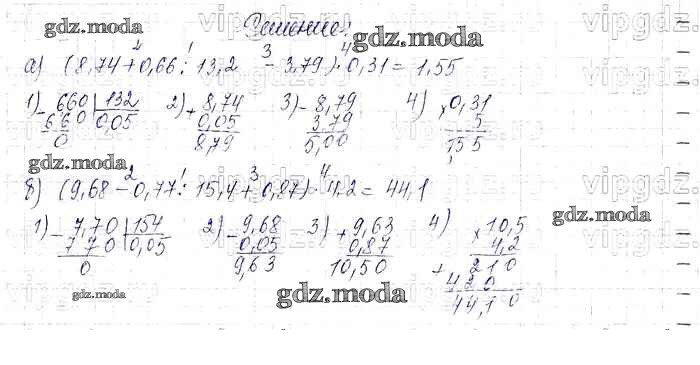 Решение:
а) (8,74 + 0,66 : 13,2 - 3,79) · 0,31 = 1,55
1) - 660 | 132
660 0,05
0
2) + 8,74
0,05
8,79
3) - 8,79
3,79
5,00
4) × 0,31
5
1,55
б) (9,68 - 0,77 : 15,4 + 0,87) · 4,2 = 44,1
1) - 7,70 | 154
770 0,05
0
2) - 9,68
0,05
9,63
3) + 9,63
0,87
10,50
4) × 10,5
4,2
+ 210
420
44,10
gdz.moda
gdz.moda
gdz.moda
gdz.moda
gdz.moda
gdz.moda